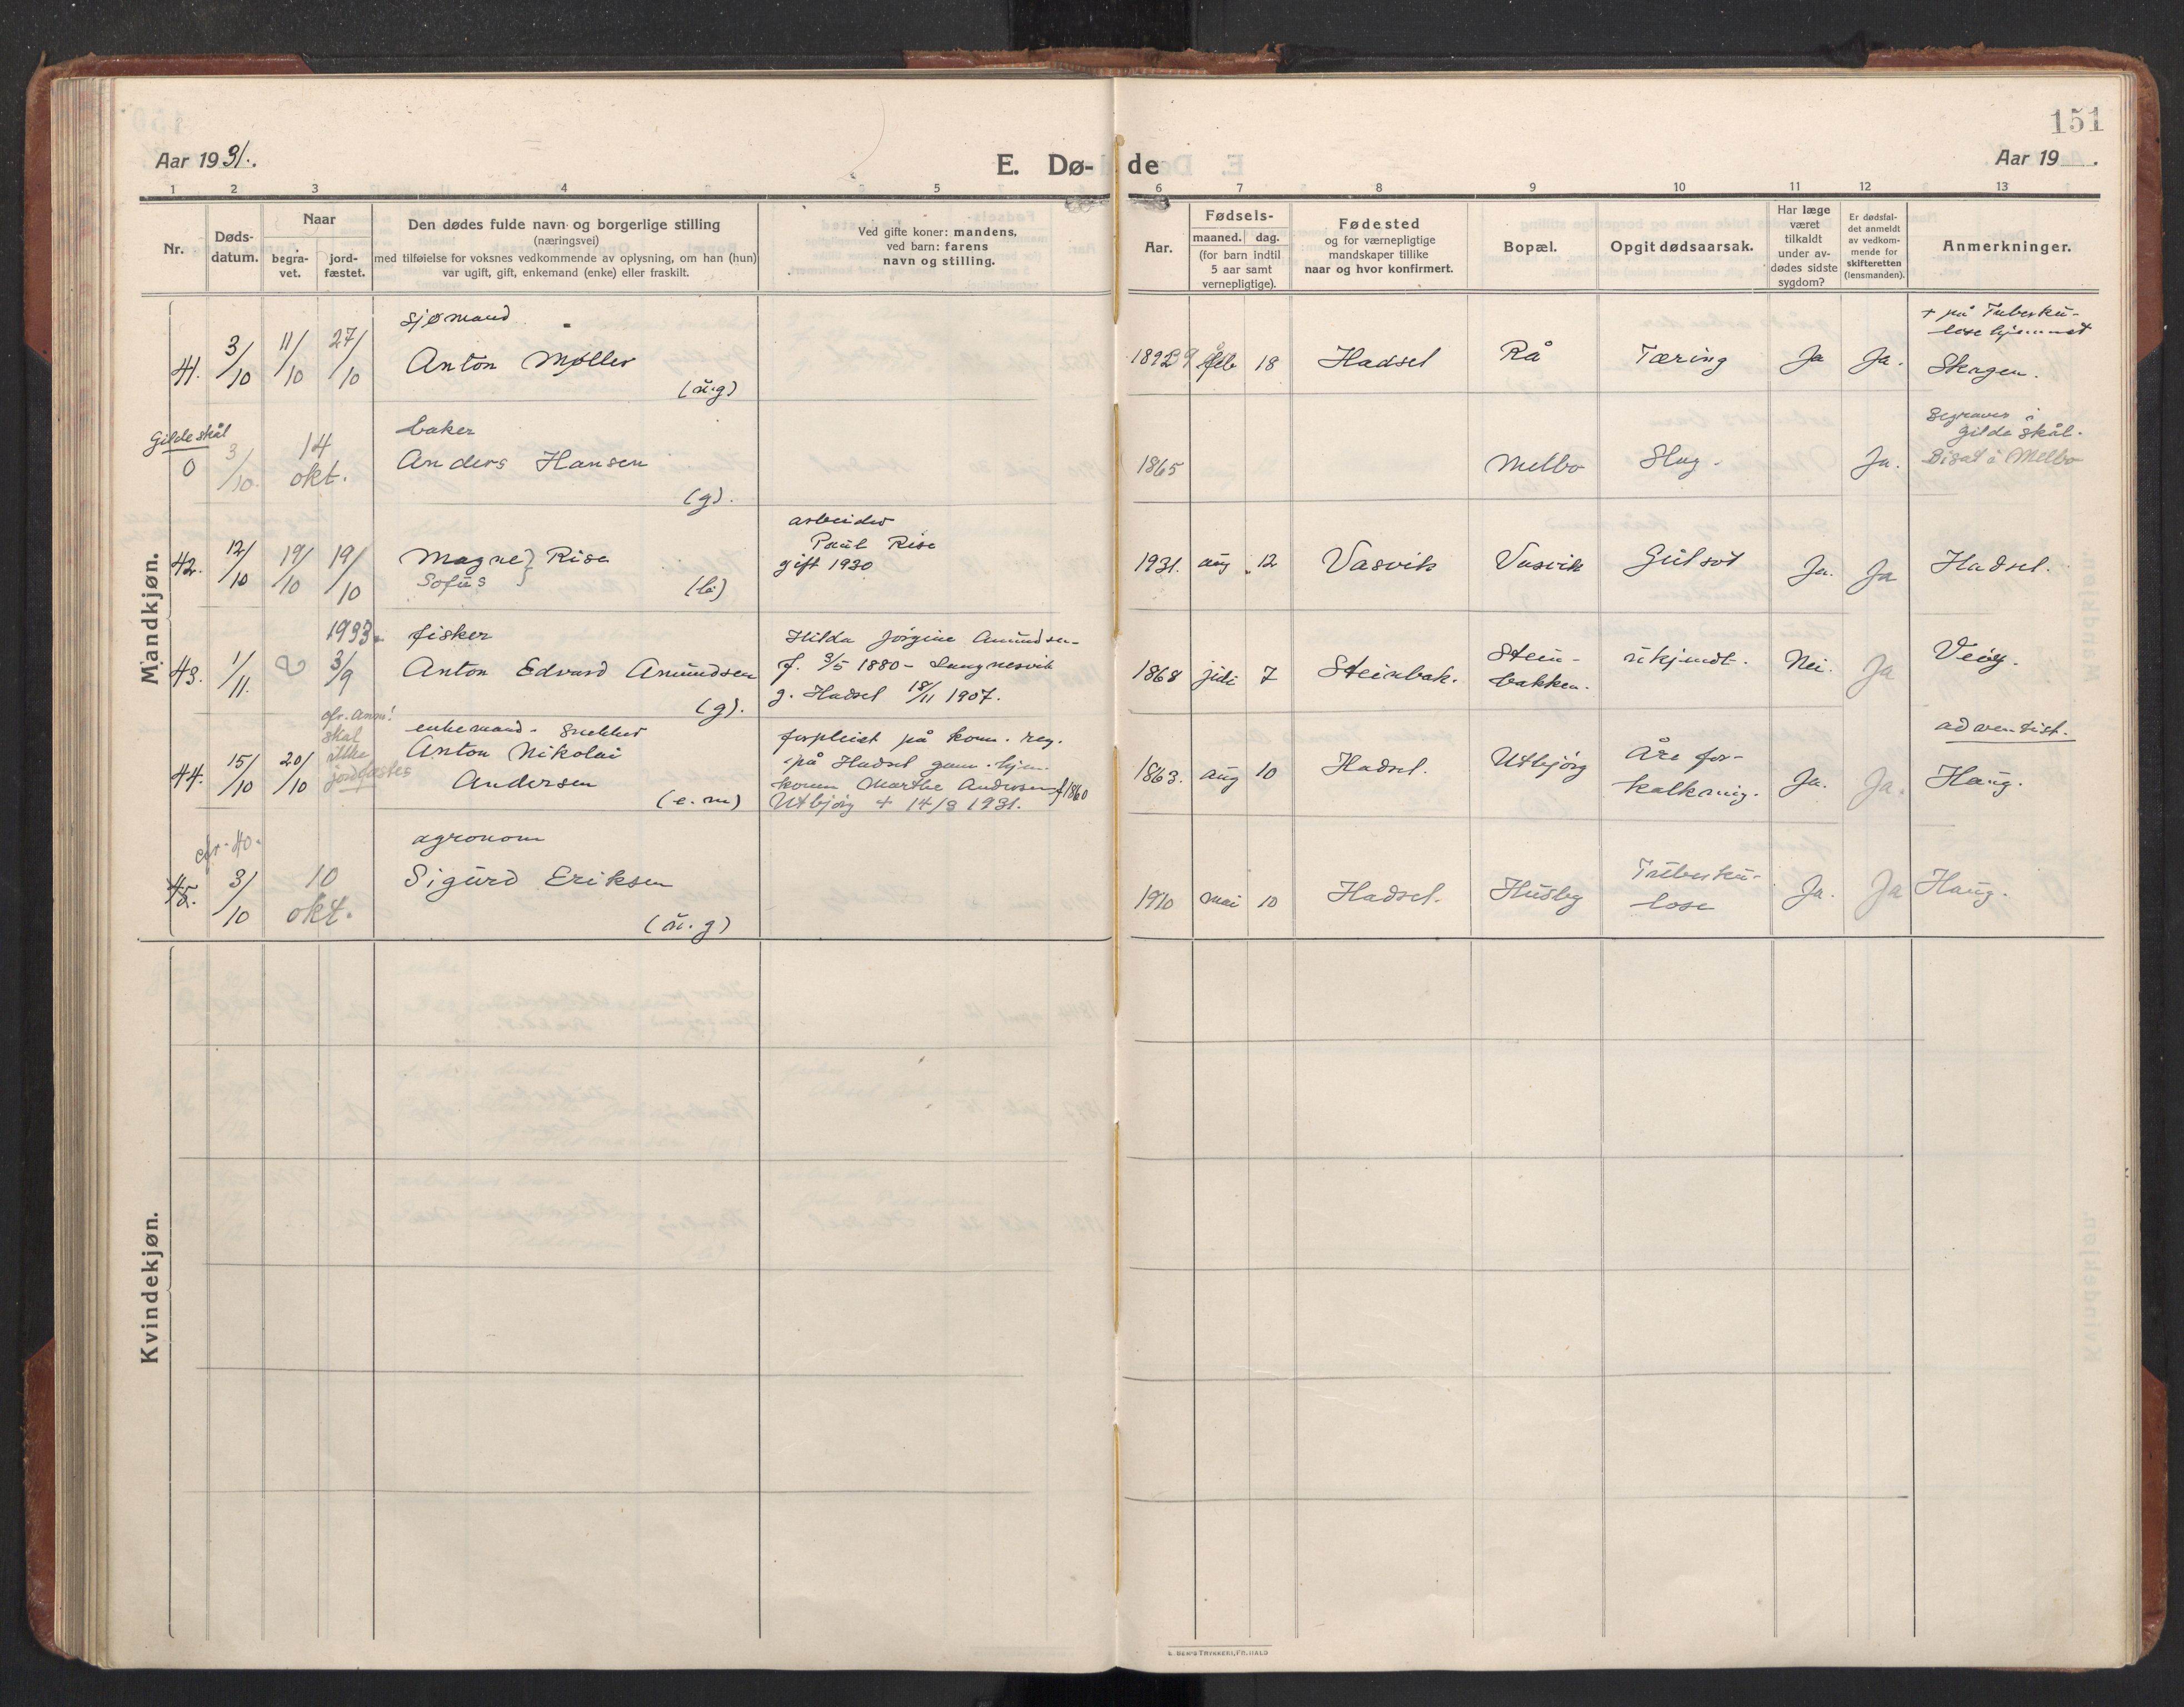 151
Aar 1931.
E. Dø-
de
Aar 19
1 2 3 4 5 6 7 8 9 10 11 12 13
Nr.
Døds-
datum.
Naar
begra-
vet.
jord-
fæstet.
Den dødes fulde navn og borgerlige stilling
(næringsvei)
med tilføielse for voksnes vedkommende av oplysning, om han (hun)
var ugift, gift, enkemand (enke) eller fraskilt.
Ved gifte koner: mandens,
ved barn: farens
navn og stilling.
Aar.
Fødsels-
maaned. dag.
(for barn indtil
5 aar samt
vernepligtige).
Fødested
og for værnepligtige
mandskaper tillike
naar og hvor konfirmert.
Bopæl.
Opgit dødsaarsak.
Har læge
været
tilkaldt
under av-
dødes sidste
sygdom?
Er dødsfal-
det anmeldt
av vedkom-
mende for
skifteretten
(lensmanden).
Anmerkninger.
Mandkjøn.
41. 3/10 11/10 27/10
sjømand
Anton Møller
(u.g)
1892 feb 18 Hadsel Rå Tæring Ja Ja.
+ på Tuberku-
lose hjemmet
Skagen.
Gildeskål
0 3/10. 14
okt.
baker
Anders Hansen
(g).
1865 Melbo Slag. Ja.
Begraves i
Gildeskål.
Bisat i Melbo
42. 12/10 19/10 19/10
Magne } Rise
Sofus }
(b)
arbeider
Paul Rise
gift 1930
1931. aug 12 Vasvik Vasvik Gulsot Ja. Ja Hadsel.
43. 1/11. 1933. 3/9
fisker
Anton Edvard Amundsen
(g).
Hilda Jørgine Amundsen
f. 9/5 1880 - Langnesvik
g. Hadsel 18/11 1907.
1868 juli 7 Steinbak.
Stein-
bakken.
ukjendt. Nei. Ja
44. 15/10 20/10
cfr. Anm!
skal
ikke
jordfæstes
enkemand - snekker
Anton Nikolai
Andersen
(e.m)
forpleiet på kom. reg.
på Hadsel gam. hjem.
konen Marthe Andersen f 1860
Utbjørg + 14/3 1931.
1863. aug 10 Hadsel. Utbjørg
Åre for-
kalkning. Ja. Ja.
adventist.
Haug.
cfr. 40.
45. 3/10 10
okt.
agronom
Sigurd Eriksen
(u.g)
1910 mai 10 Hadsel. Husby
Tuberku-
lose Ja. Ja Haug.
Kvindekjøn.